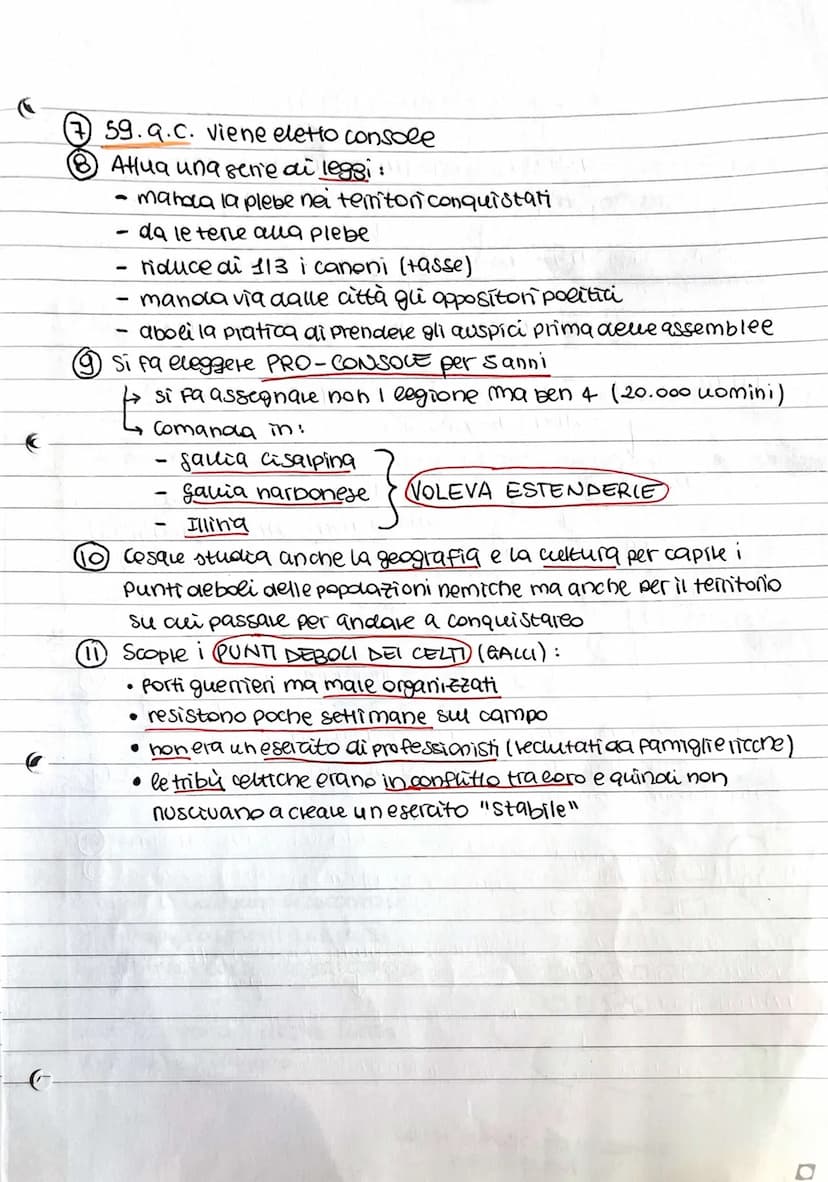 7 59.a.C. viene eletto console
8 Attua una serie di leggi:
- manda la plebe nei territori conquistati
- da le terre alla plebe
- riduce di 1/3 i canoni (tasse)
- manda via dalle città gli oppositori politici
- abolì la pratica di prendere gli auspici prima delle assemblee
9 Si fa eleggere PRO-CONSOLE per 5 anni
↳ si fa assegnare non 1 legione ma ben 4 (20.000 uomini)
↳ comanda in:
- gallia cisalpina
- gallia narbonese } VOLEVA ESTENDERLE
- Illiria
10 Cesare studia anche la geografia e la cultura per capire i
punti deboli delle popolazioni nemiche ma anche per il territorio
su cui passare per andare a conquistareo
11 Scopre i PUNTI DEBOLI DEI CELTI (GALLI):
• forti guerrieri ma male organizzati
• resistono poche settimane sul campo
• non era un esercito di professionisti (reclutati da famiglie ricche)
• le tribù celtiche erano in conflitto tra loro e quindi non
riuscivano a creare un esercito "stabile"